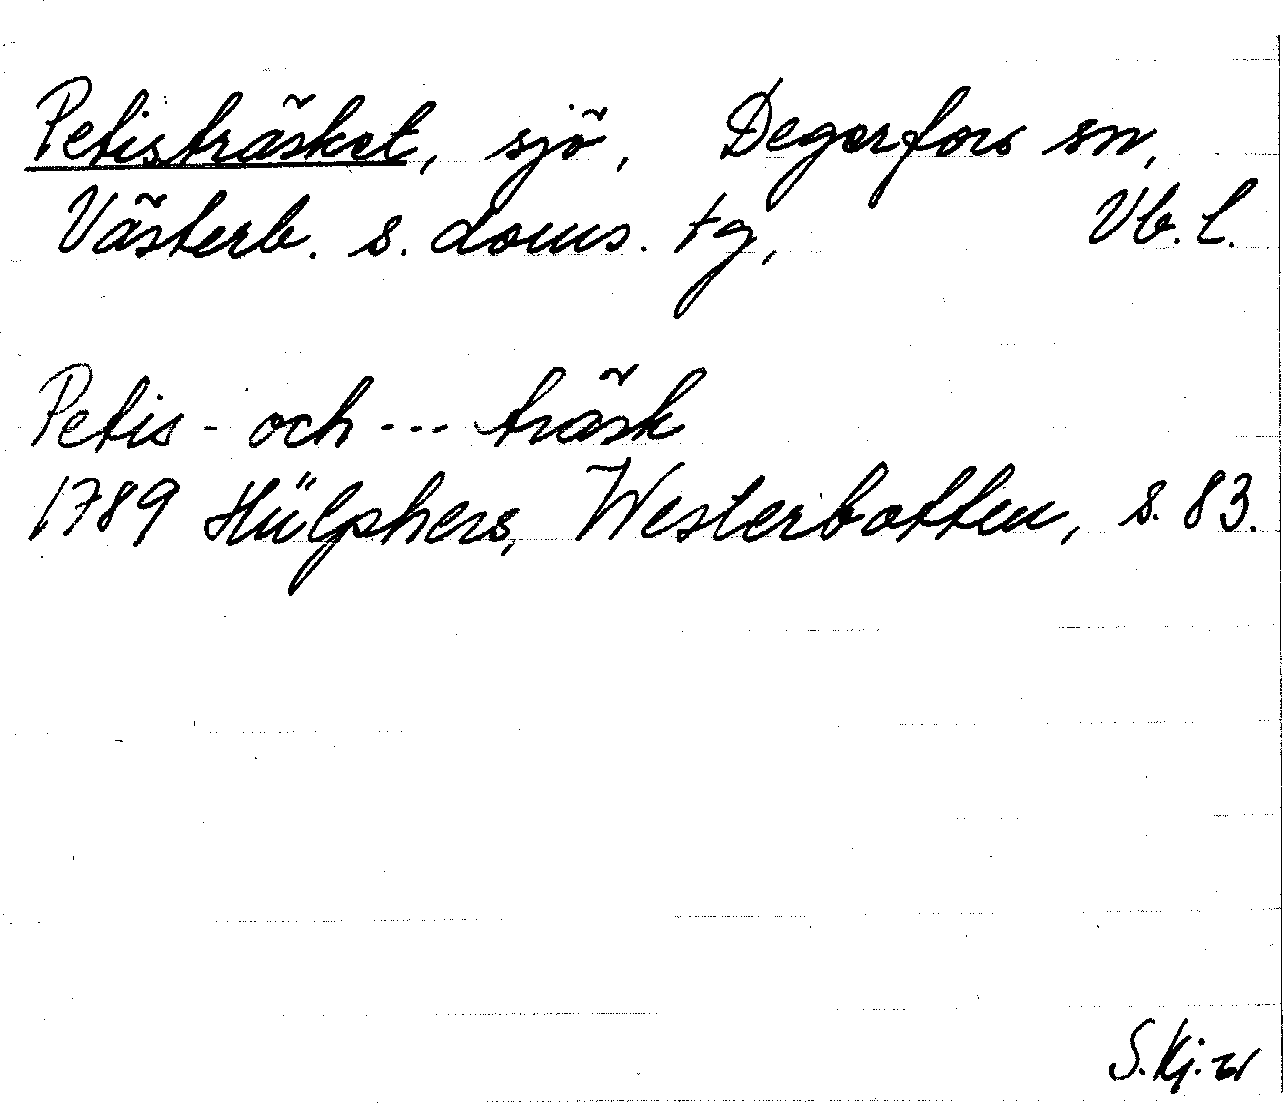 Petisträsket, sjö, Degerfors sn,
Västerb. s. doms. tg, Vb. l.
Petis- och --- träsk
1789 Hülphers, Westerbotten, s. 83.
S. Kj.